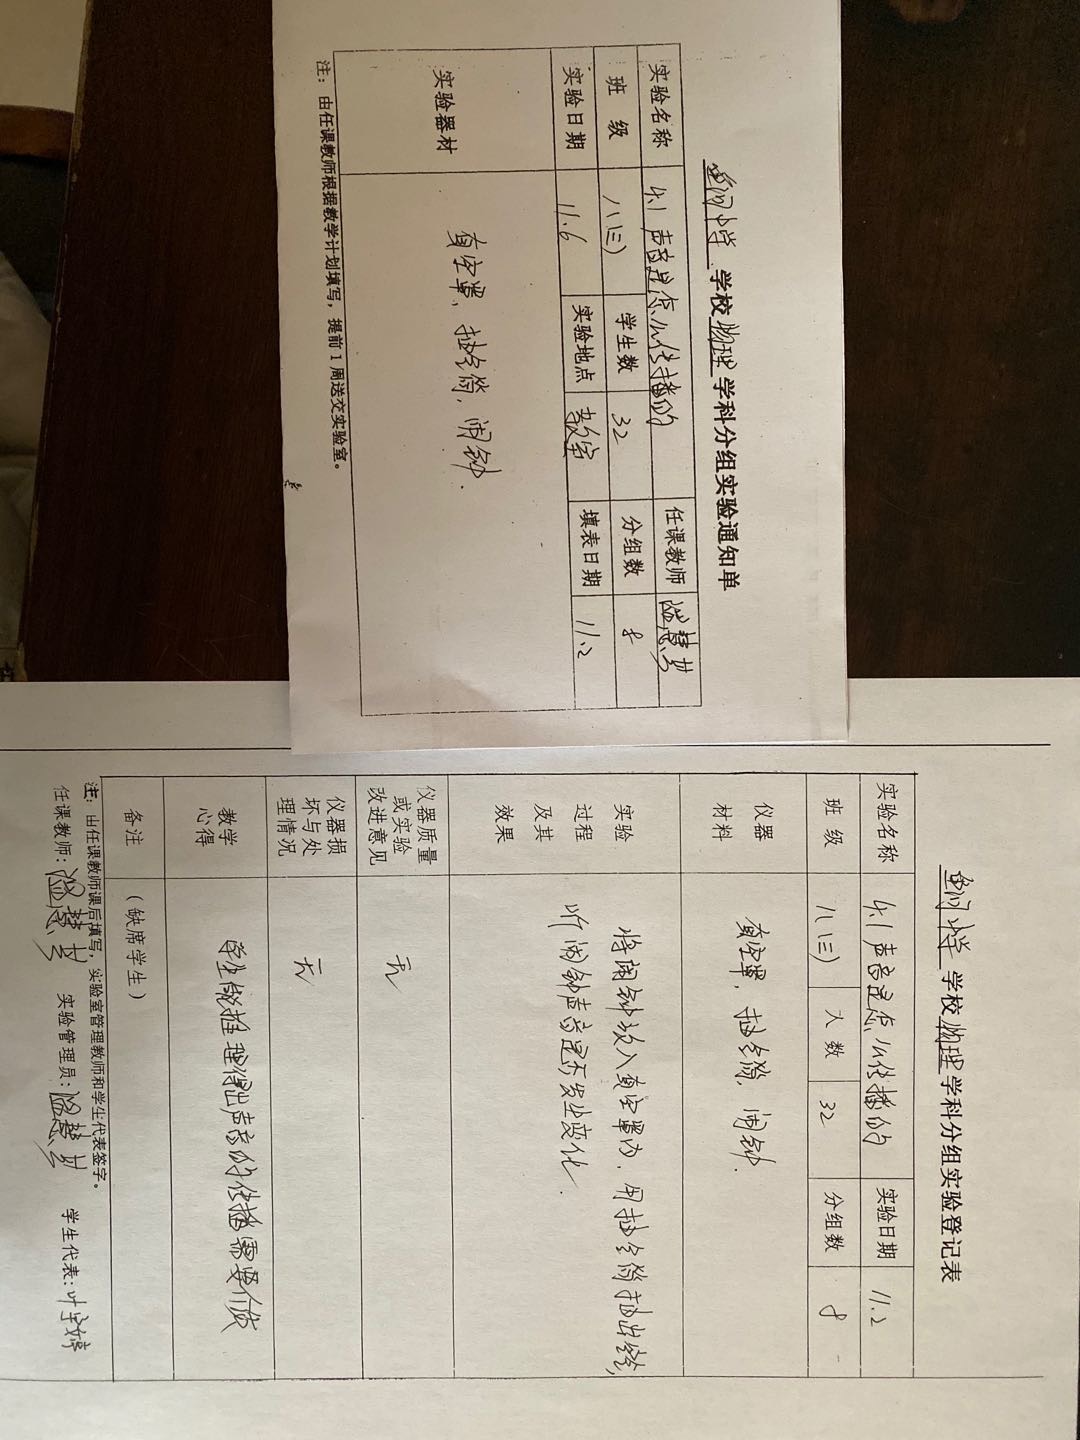 学校物理学科分组实验通知单
实验名称 4.1 声音是怎么传播的 任课教师
班级 八(三) 学生数 32 分组数 8
实验日期 11.6 实验地点 教室 填表日期 11.2
实验器材 真空罩、抽气筒、闹钟.
注：由任课教师根据教学计划填写，提前1周送交实验室。
学校物理学科分组实验登记表
实验名称 4.1 声音是怎么传播的 实验日期 11.2
班级 八(三) 人数 32 分组数 8
仪器材料 真空罩，抽气筒，闹钟.
实验过程及其效果 将闹钟放入真空罩内，用抽气筒抽出空气，
听闹钟声音是否发生变化.
仪器质量或实验改进意见 无
仪器损坏与处理情况 无
教学心得 学生能推理得出声音的传播需要介质
备注 (缺席学生)
注：由任课教师课后填写，实验室管理教师和学生代表签字。
任课教师： 实验管理员： 学生代表：叶宇婷